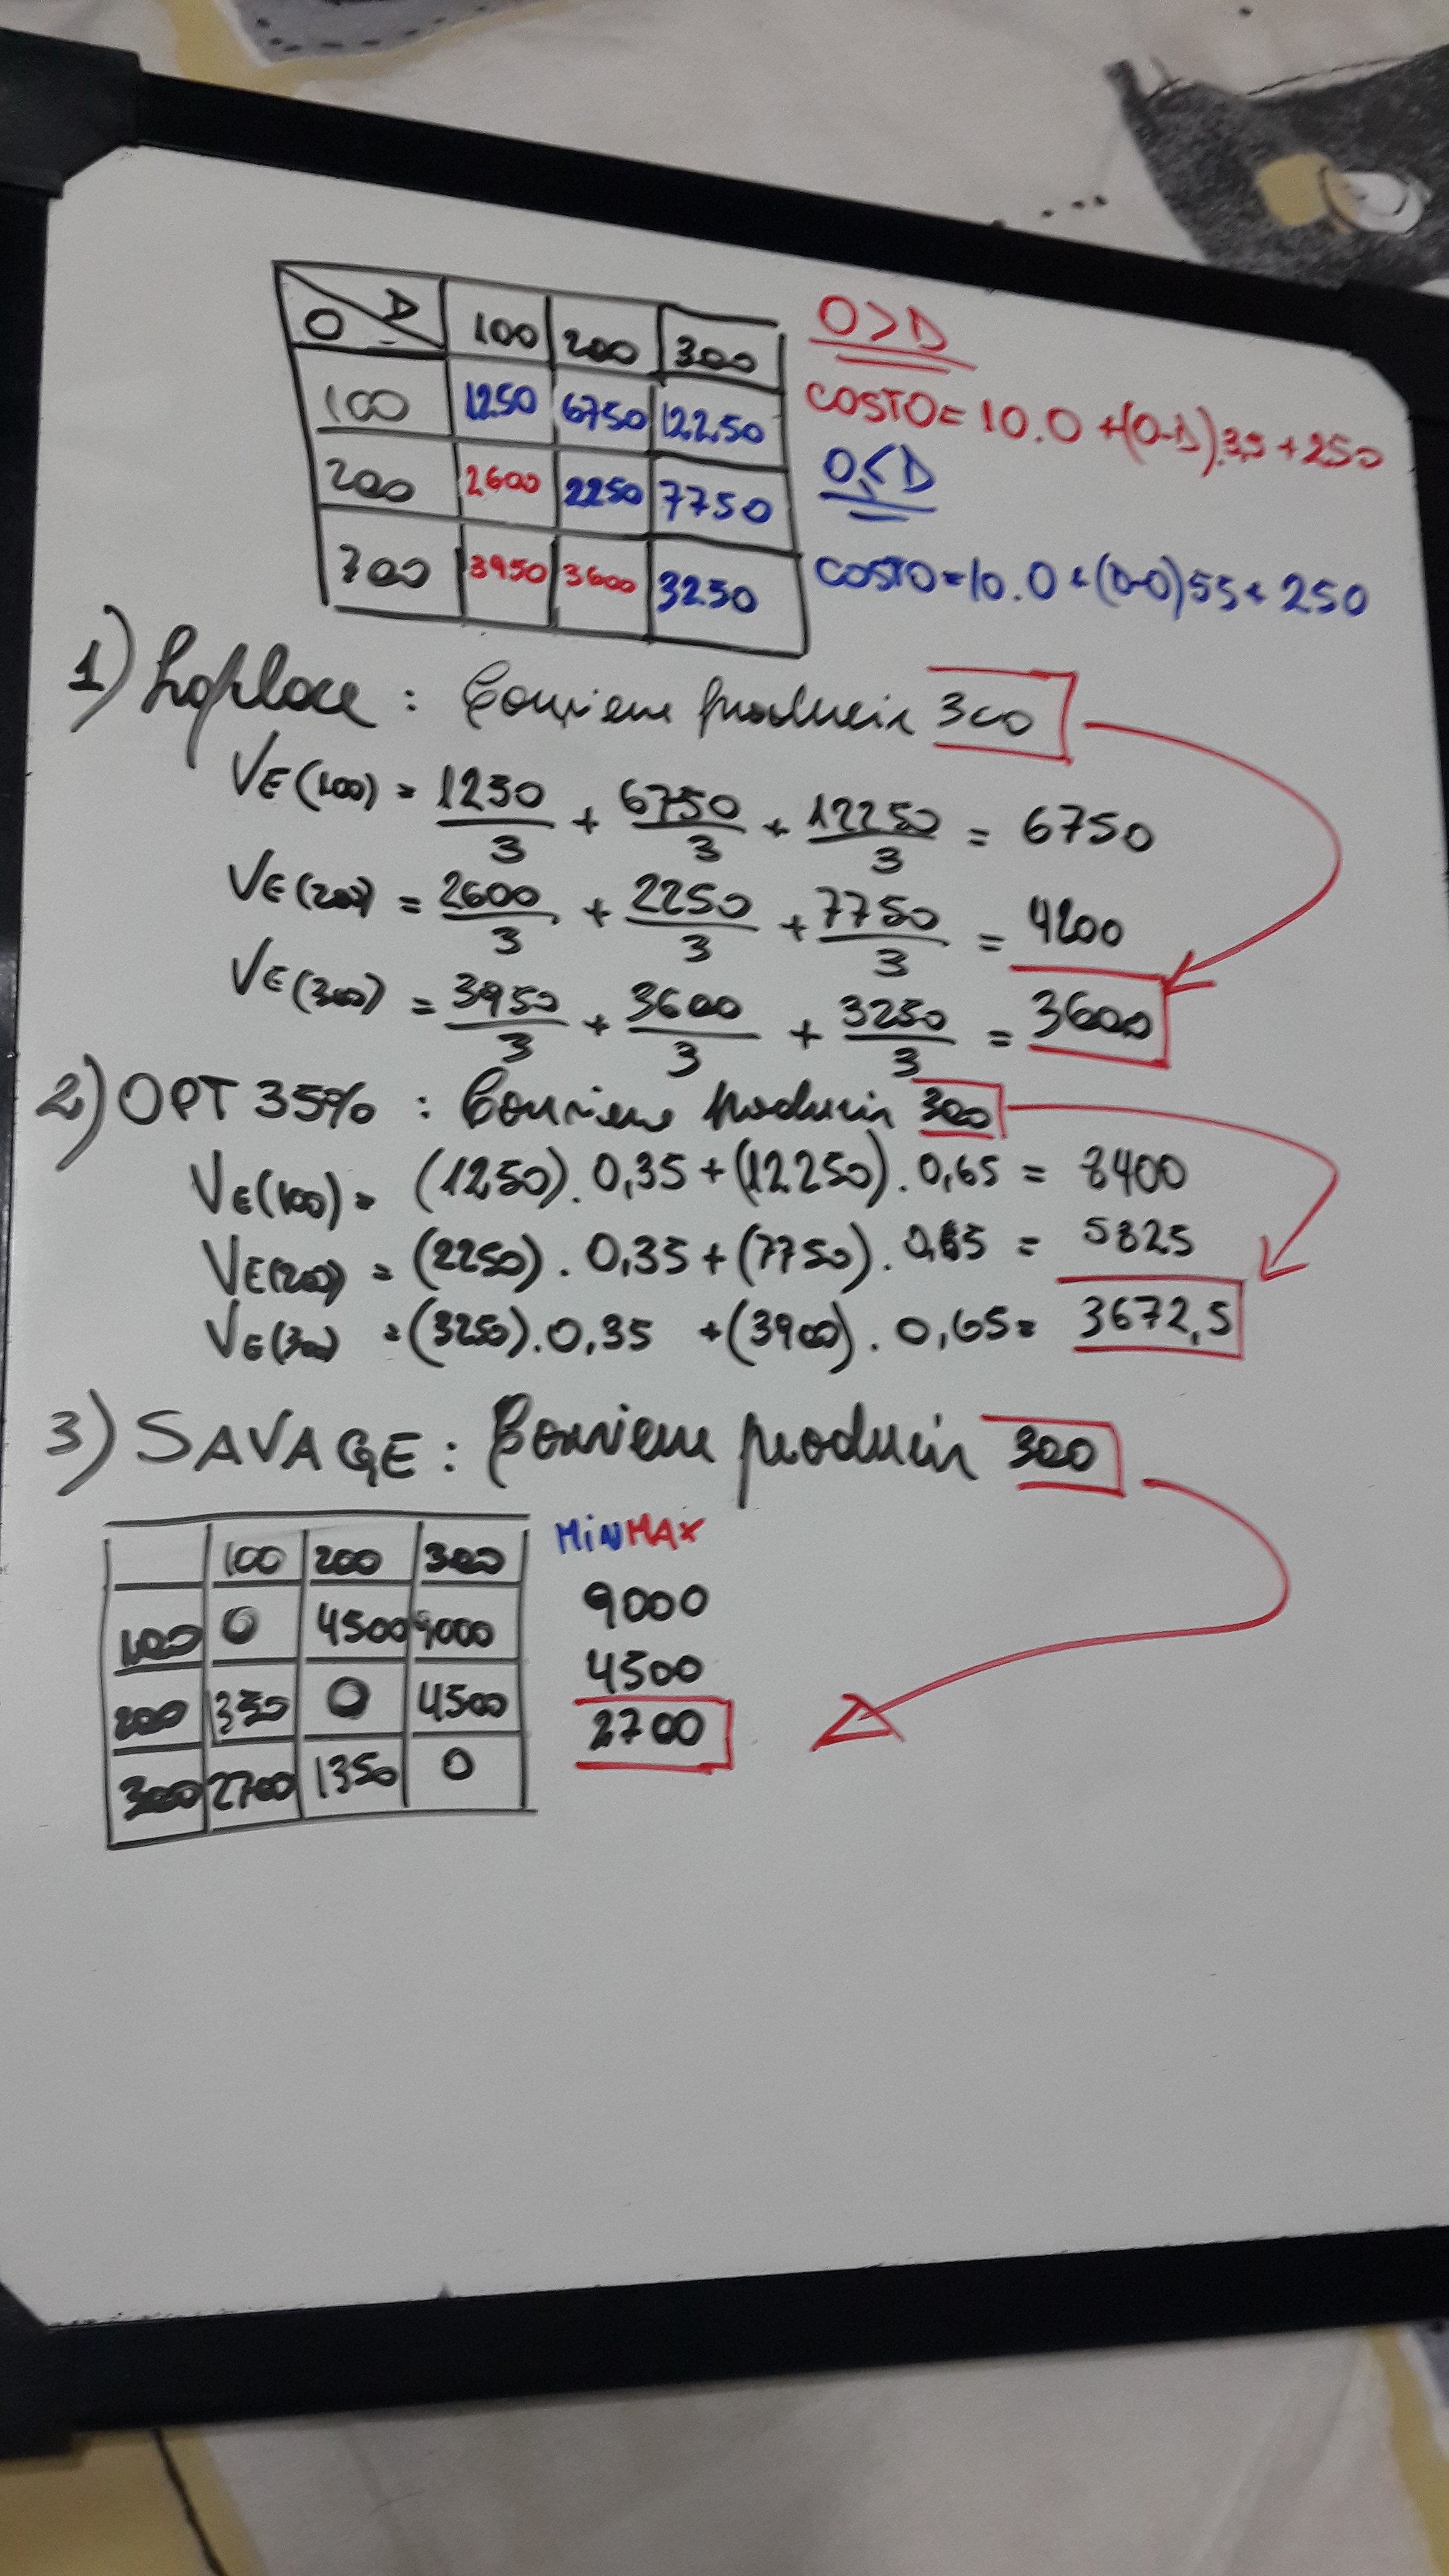 O D 100 200 300
100 1250 6750 12250
200 2600 2250 7750
300 3950 3600 3250
O>D
COSTO = 10.O +(O-D).3,5 + 250
O≤D
COSTO = 10.O + (D-O)55 + 250
1) Laplace : Conviene producir 300
VE(100) = 1250/3 + 6750/3 + 12250/3 = 6750
VE(200) = 2600/3 + 2250/3 + 7750/3 = 4200
VE(300) = 3950/3 + 3600/3 + 3250/3 = 3600
2) OPT 35% : Conviene producir 300
VE(100) = (1250). 0,35 + (12250). 0,65 = 8400
VE(200) = (2250). 0,35 + (7750). 0,65 = 5825
VE(300) = (3250).0,35 + (3900). 0,65 = 3672,5
3) SAVAGE : Conviene producir 300
100 200 300 MiNMAX
100 0 4500 9000 9000
200 1350 0 4500 4500
300 2700 1350 0 2700